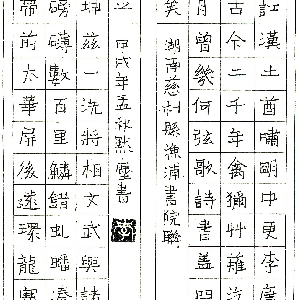 訌漢土酋嘯明中更李
古今二千年禽獼艸薙
月曾幾何弦歌詩書蓋四
矣 湖南慈利縣漁浦書院聯
甲戌年五秋默廬書
坤茲一洗將相文武與
磅礴數百里鱗錯虬蟠
帶前太華屏後遠環龍